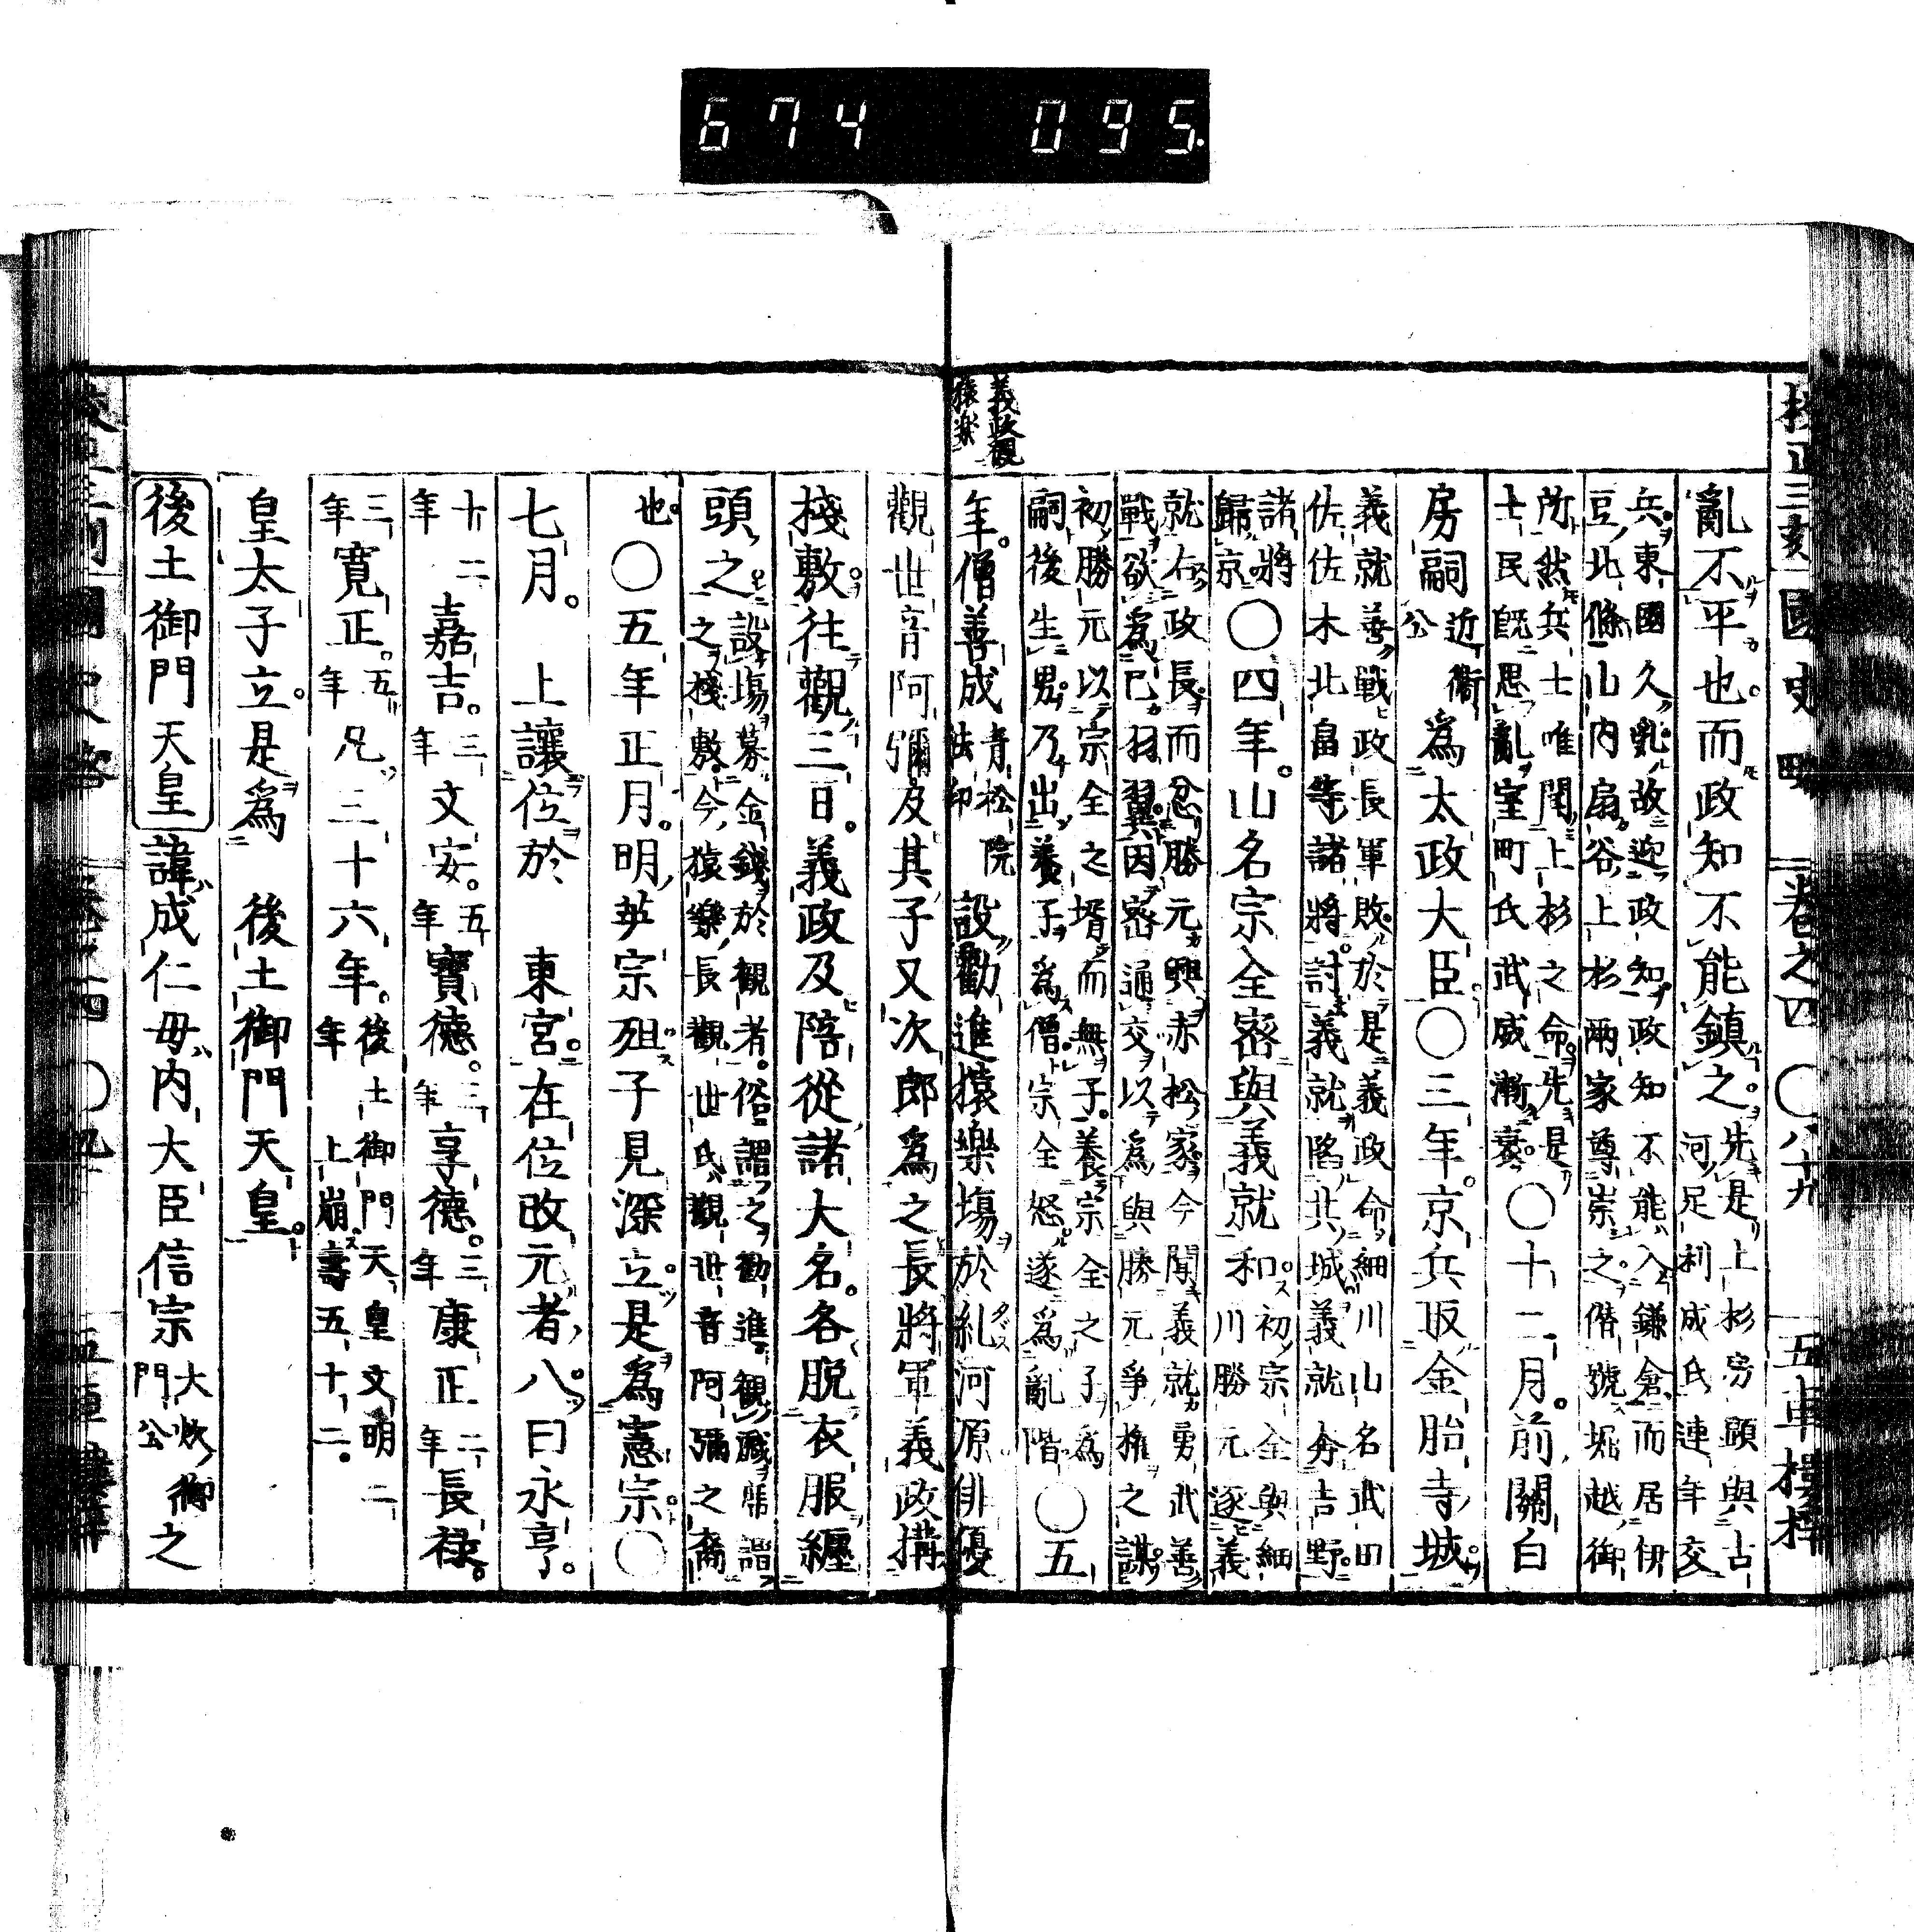 674 095
國史略 卷之四 〇八十九 五車樓梓
亂不平也。而政知不能鎮之。先是上杉房顯與古
河足利成氏連年交
兵。東國久亂。故迎政知。政知不能入鎌倉。而居伊
豆北條。山内扇谷上杉兩家尊崇之。僭號堀越御
所。然兵士唯聞上杉之命。先是
士民既思亂。室町氏武威漸衰。〇十二月。前關白
房嗣近衞公爲太政大臣。〇三年。京兵取金胎寺城。
義就善戰。政長軍敗於是。義政命細川山名武田
佐佐木北畠等諸將討義就。陷其城。義就奔吉野。
諸將
歸京〇四年。山名宗全密與義就和。初宗全與細
川勝元逐義
就右政長。而忿勝元興赤松家。今聞義就勇武善
戰。欲爲己羽翼。因密通交。以爲與勝元爭權之謀。
初勝元以宗全之壻而無子。養宗全之子爲
嗣。後生男。乃出養子爲僧。宗全怒。遂爲亂階〇五
義政觀
猿樂
年。僧善成青松院
法印設勸進猿樂場於糺河原。俳優
觀世音阿彌及其子又次郎爲之長。將軍義政搆
棧敷。往觀三日。義政及陪從諸大名。各脱衣服纒
頭之。設場募金錢於觀者。俗謂之勸進。觀臟棚謂
之棧敷。今猿樂長觀世氏。觀世音阿彌之裔
也。〇五年正月。明英宗殂。子見深立。是爲憲宗。〇
七月。 上讓位於 東宮。在位改元者八。曰永享。
十二
年嘉吉。三
年文安。五
年寶德。三
年享德。三
年康正二
年長祿。
三
年寬正。五
年凡三十六年。後土御門天皇文明二
年 上崩。壽五十二。
皇太子立。是爲 後土御門天皇。
後土御門天皇 諱成仁。母内大臣信宗大炊御
門公之